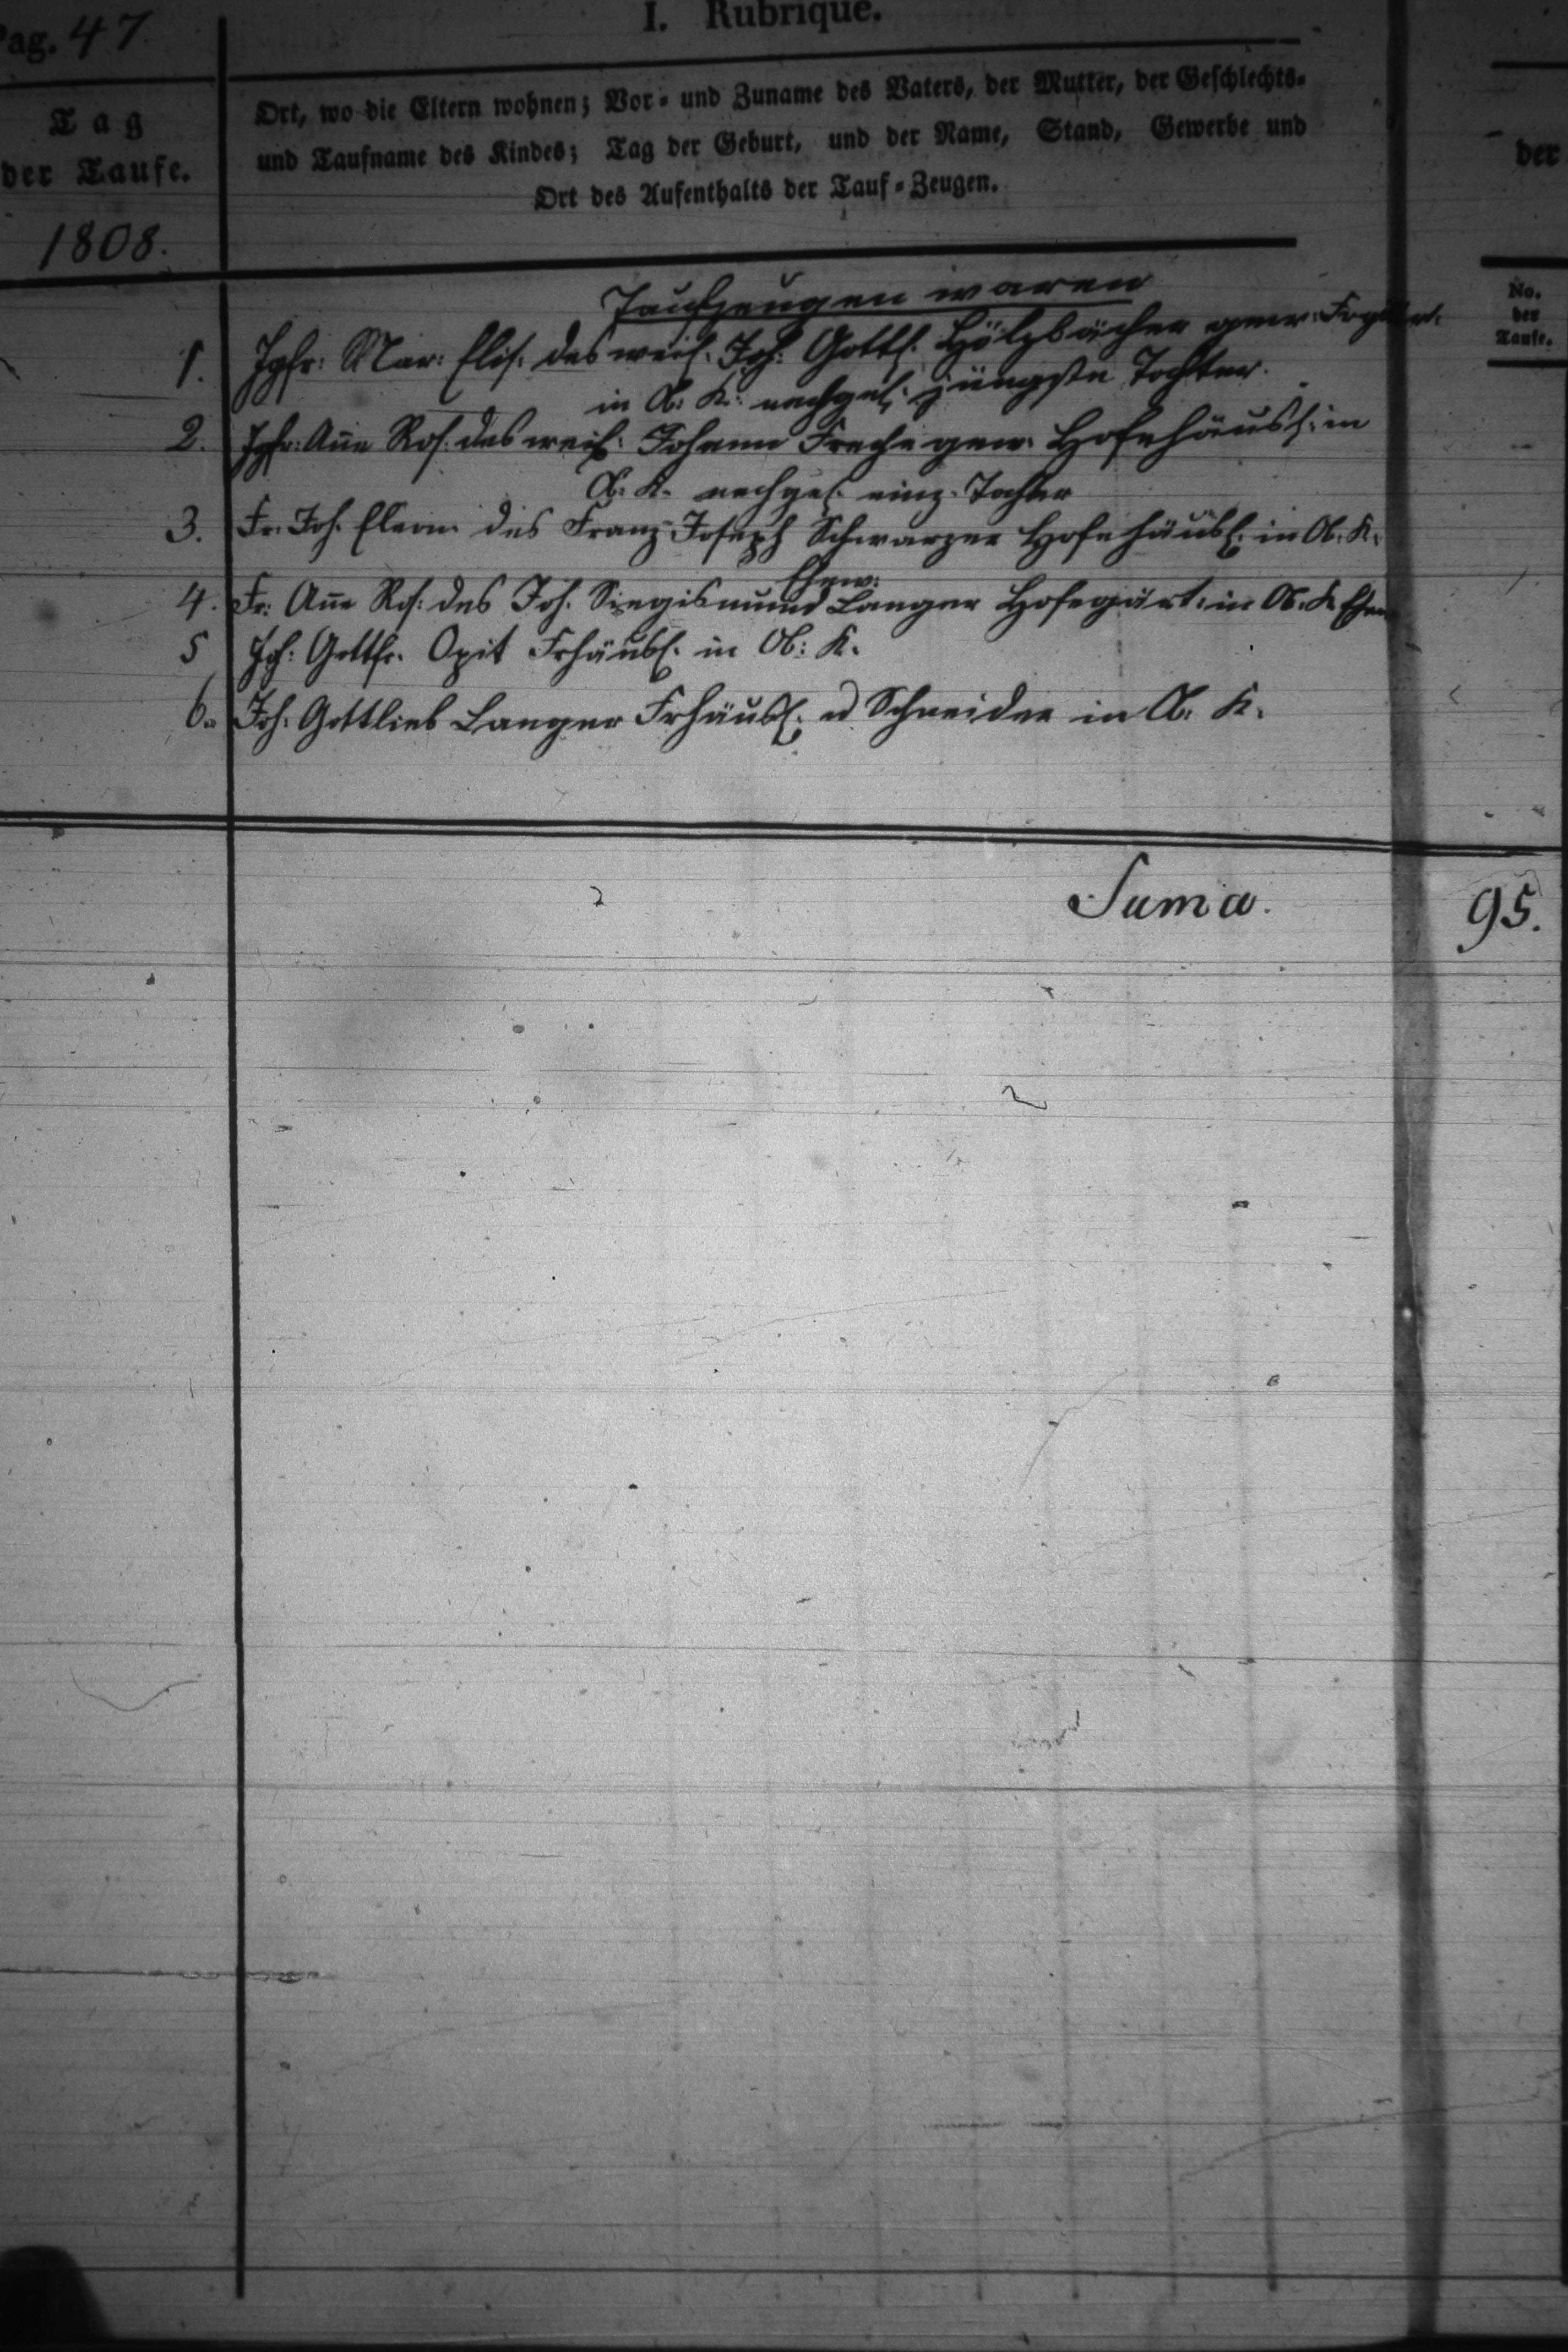 Pag. 47.
I. Rubrique.
Tag
der Taufe.
1808.
Ort, wo die Eltern wohnen; Vor- und Zuname des Vaters, der Mutter, der Geschlechts-
und Taufname des Kindes; Tag der Geburt, und der Name, Stand, Gewerbe und
Ort des Aufenthalts der Tauf-Zeugen.
der
No.
der
Taufe.
Taufzeugen waren
1. Jgfr: Mar: Elis. des weil. Joh: Gottl. Hölzbächer gew:
in Ob. K. nachgel. jüngste Tochter.
2. Jgfr: Añe Ros. des weil: Johann Freche gew. Hofehäusl. in
Ob. K. nachgel. einz. Tochter
3. Fr. Joh. Eleon. des Franz Joseph Schwarzer Hofehäusl. in Ob. K.
Ehew:
4. Fr: Añe Ros: des Joh. Siegismund Langer Hofegärt. in Ob. K. Ehew
5 Joh: Gottfr. Opit Frhäusl. in Ob: K.
6. Joh. Gottlieb Langer Frhäusl. u Schneider in Ob. K.
Suma. 95.